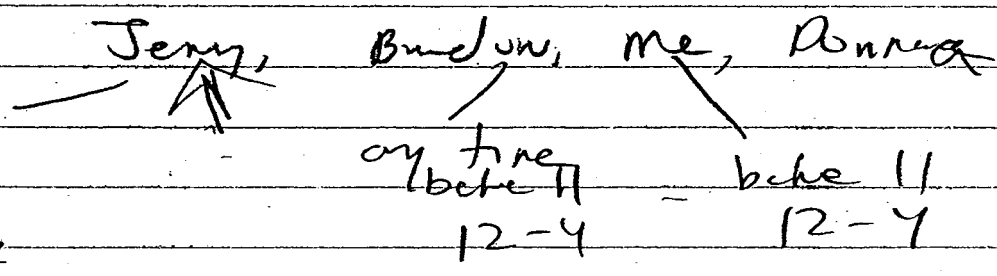 Jerry, Brandon, Me, Donna
any time
before 11 before 11
12-4 12-4